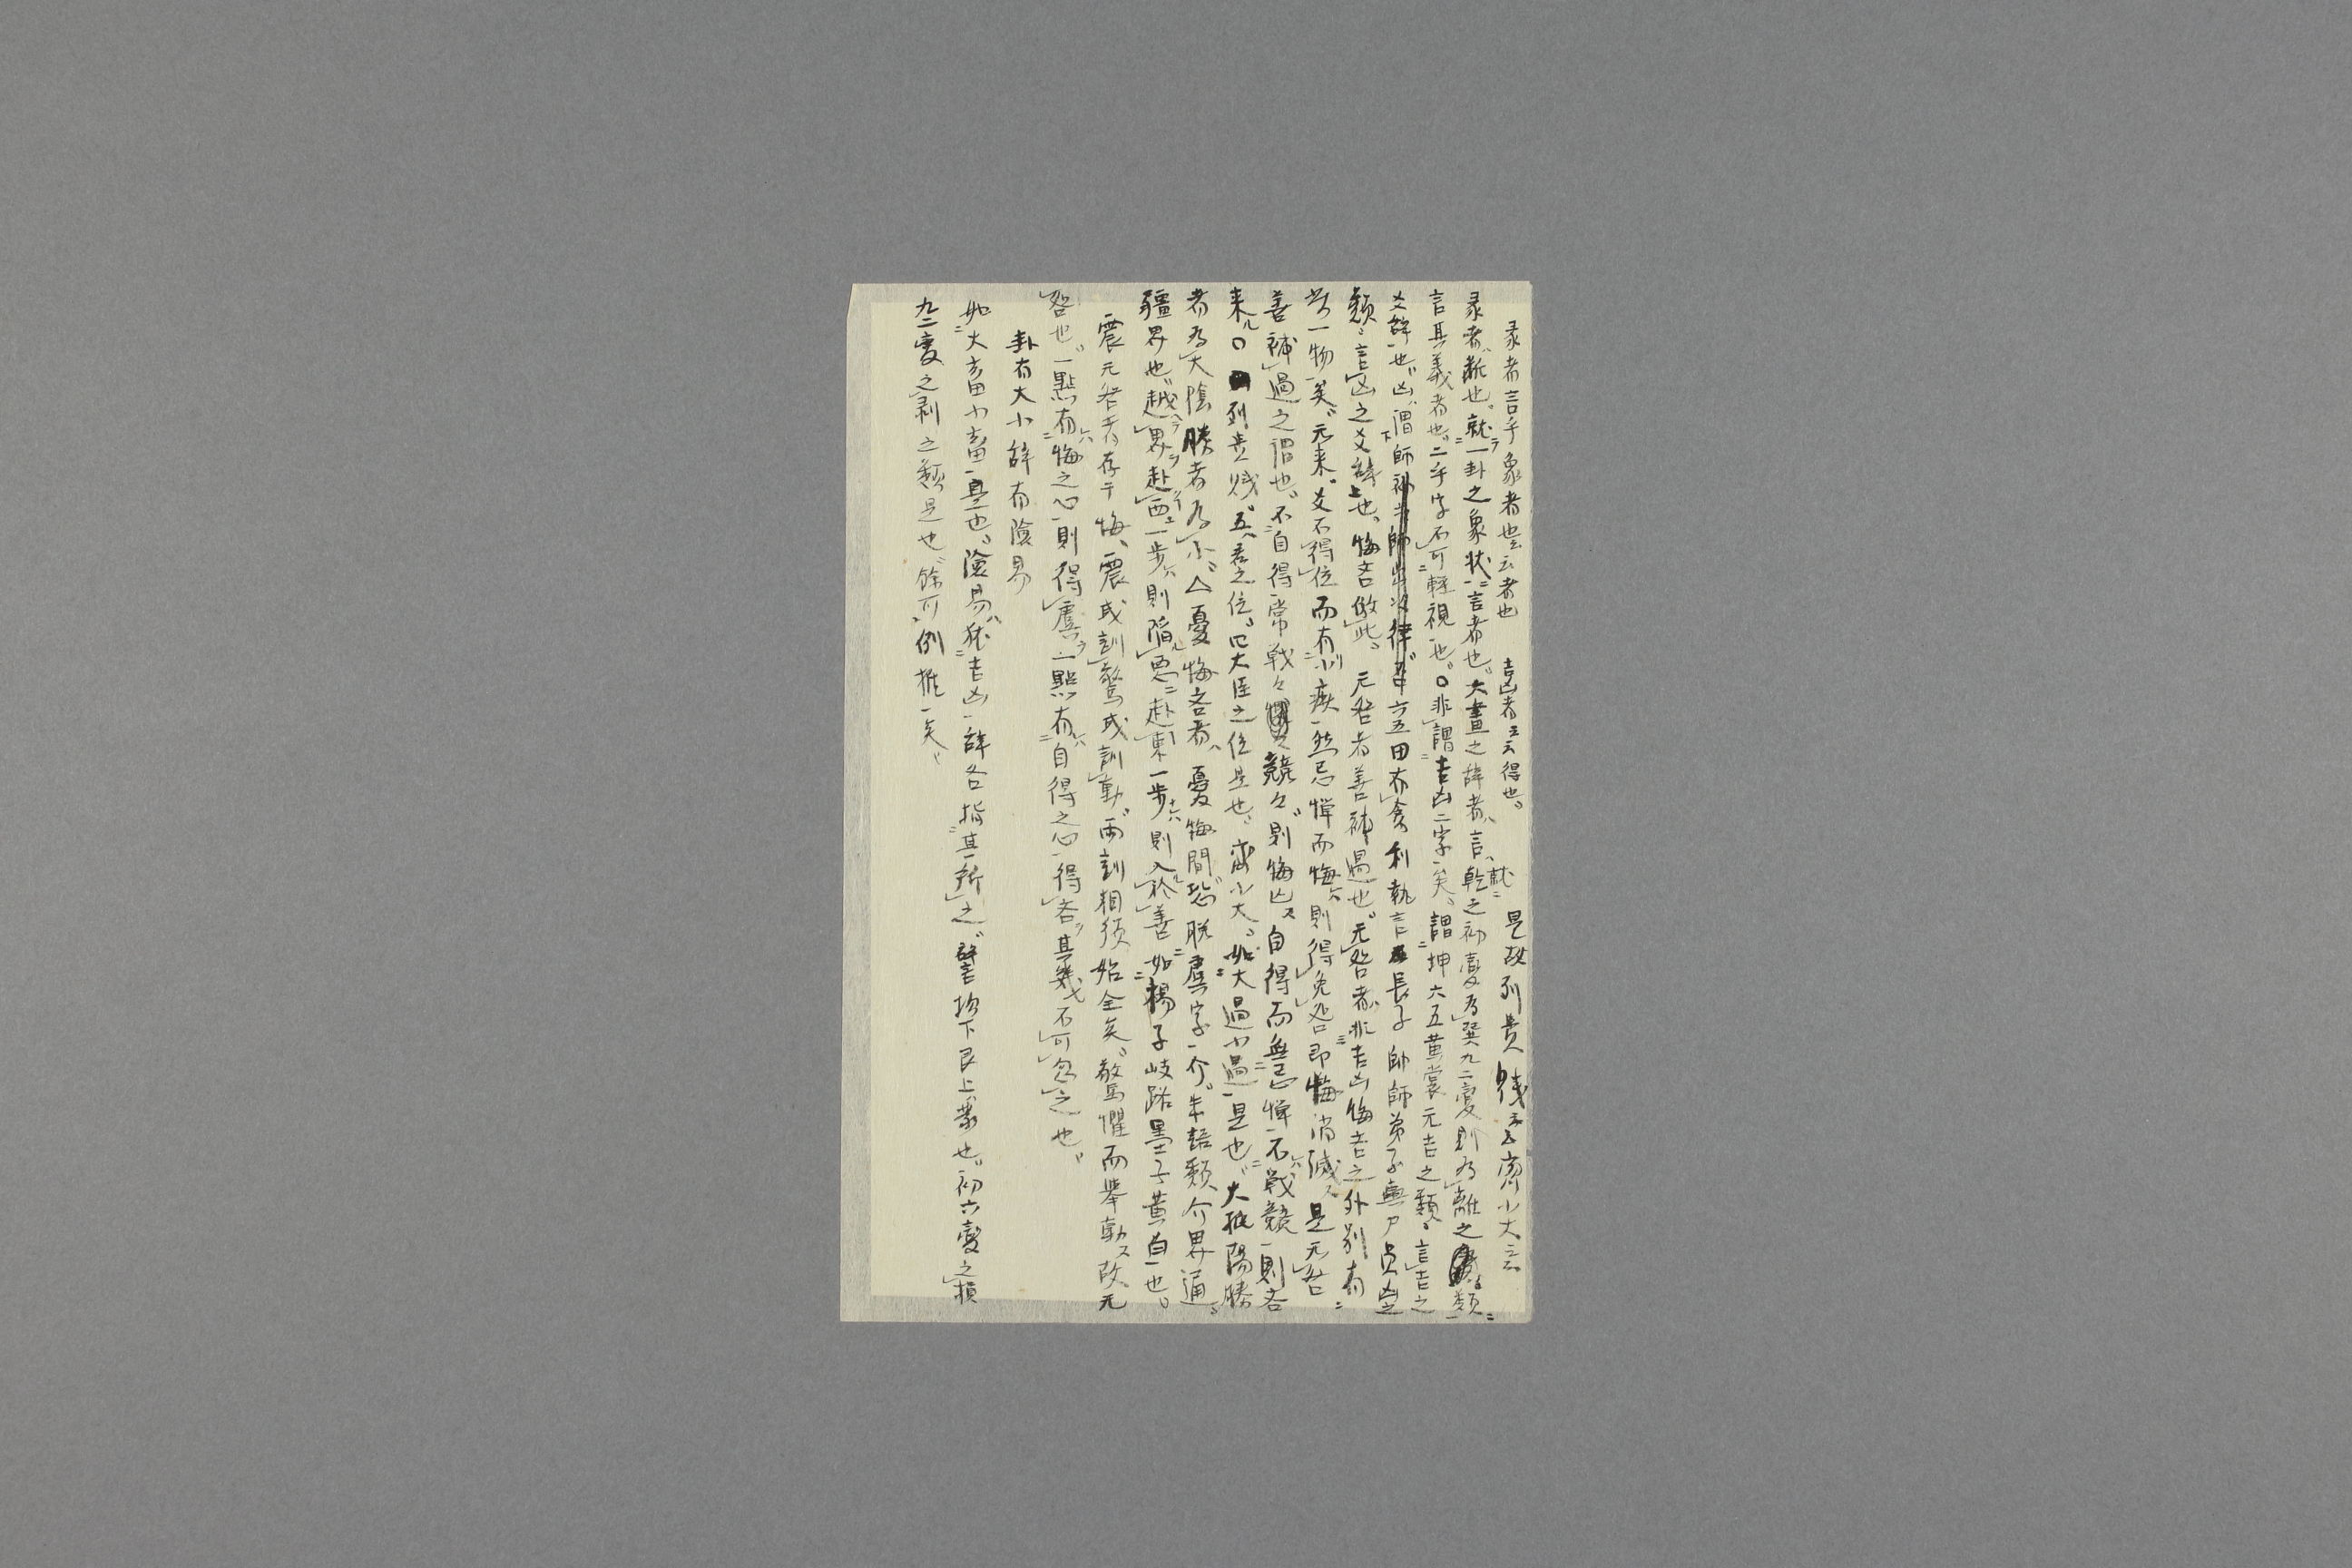 彖者言乎象者也云云者也 吉凶者云云得也。 是故列貴賤云云齊小大云云
彖者、断也。就一卦之象状言者也。大畫之辞者、言就乾之初変為巽九二変則為離之類
言其義者也。二乎字不可軽視也。〇非謂吉凶二字矣、謂坤六五黄裳元吉之類、言吉之
爻辞也。凶、謂師六五田有禽利執言長子帥師弟子輿尸貞凶之
類、言凶之爻辞也。悔吝倣此。无咎者善補過也。无咎者、非吉凶悔吝之外別有
一物矣。元来、爻不得位而有小疾然忌憚而悔、則得免咎即悔消滅、是无咎
善補過之謂也。不自得常戦々競々、則悔凶、自得而無忌憚不戦競則吝
来、〇列貴賤、五、君之位、四大臣之位是也。齊小大、如大過小過是也。大抵陽勝
者為大陰勝者為小。△憂悔吝者、憂悔間恐脱虞字介。朱語類介界通。
疆界也。越界赴西一歩、則陥悪赴東一歩、則入於善如楊子岐路墨子黄白也。
震无咎者存乎悔、震或訓驚或訓動。両訓相須始全矣。驚懼而挙動改无
咎也。一點有悔之心則得虞、一點有自得之心得吝、其幾不可忽之也。
卦有大小辞有険易
如大畜小畜是也。険易、猶吉凶辞各指其所之。譬坎下艮上、蒙也。初六変之損
九二変之剥之類是也。餘可例推矣。